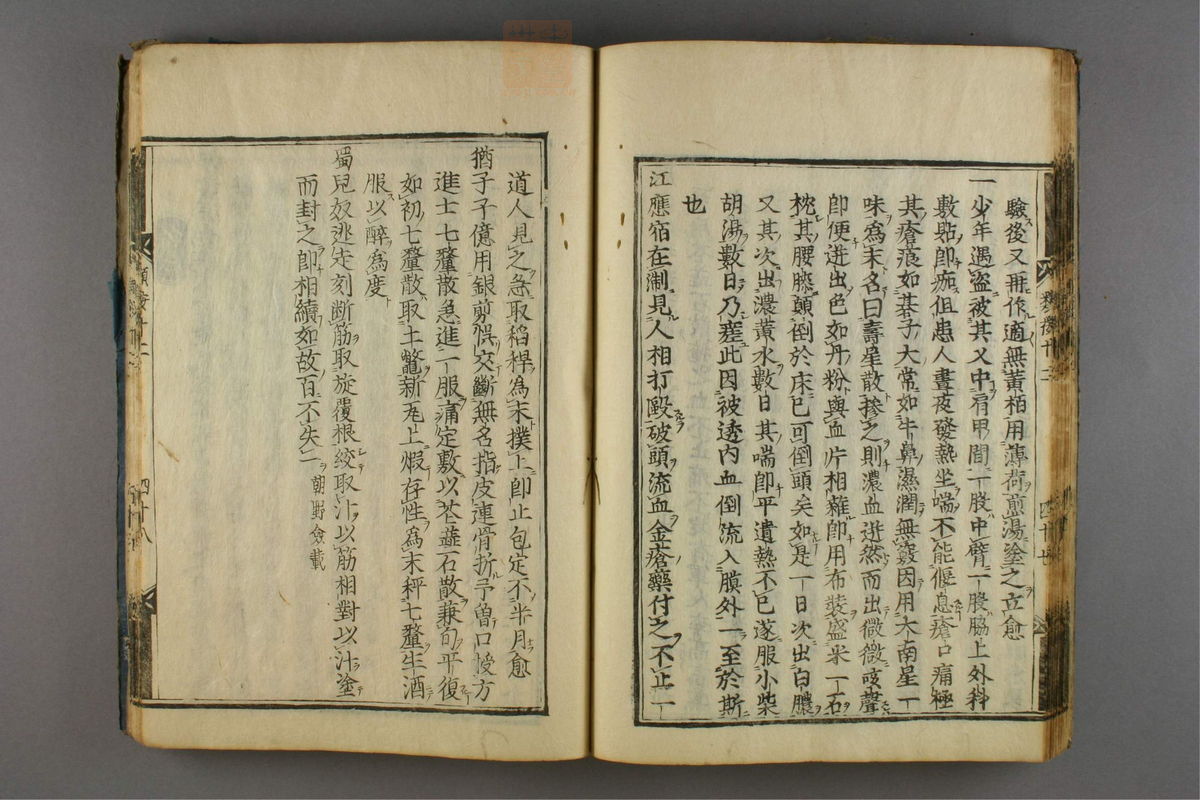 驗後又再作適無黃栢用薄荷煎湯塗之立愈
一少年遇盜被其叉中肩甲間一股中臂一股脇上外科
敷貼卽痂但患人晝夜發熱坐喘不能偃息瘡口痛極
其瘡痕如碁子大常如牛鼻濕潤無竅因用大南星一
味爲末名曰壽星散摻之則濃血迸然而出微微咳聲
卽便迸出色如丹粉與血片相雜卽用布裝盛米一石
枕其腰膝顛倒於床已可倒頭矣如是一日次出白膿
又其次出濃黃水數日其喘卽平遺熱不已遂服小柴
胡湯數日乃瘥此因被透內血倒流入膜外一至於斯
也
江應宿在淛見人相打毆破頭流血金瘡藥付之不止一
類案十二
四十七
道人見之急取稻稈爲末撲上卽止包定不半月愈
猶子子億用銀剪悞交斷無名指皮連骨折予曾口授方
進士七釐散急進一服痛定敷以花蘂石散兼旬平復
如初七釐散取土鼈新瓦上煆存性爲末秤七釐生酒
服以醉爲度
蜀兒奴逃走刻斷筋取旋覆根絞取汁以筋相對以汁塗
而封之卽相續如故百不失一 朝野僉載
類案十二
四十八